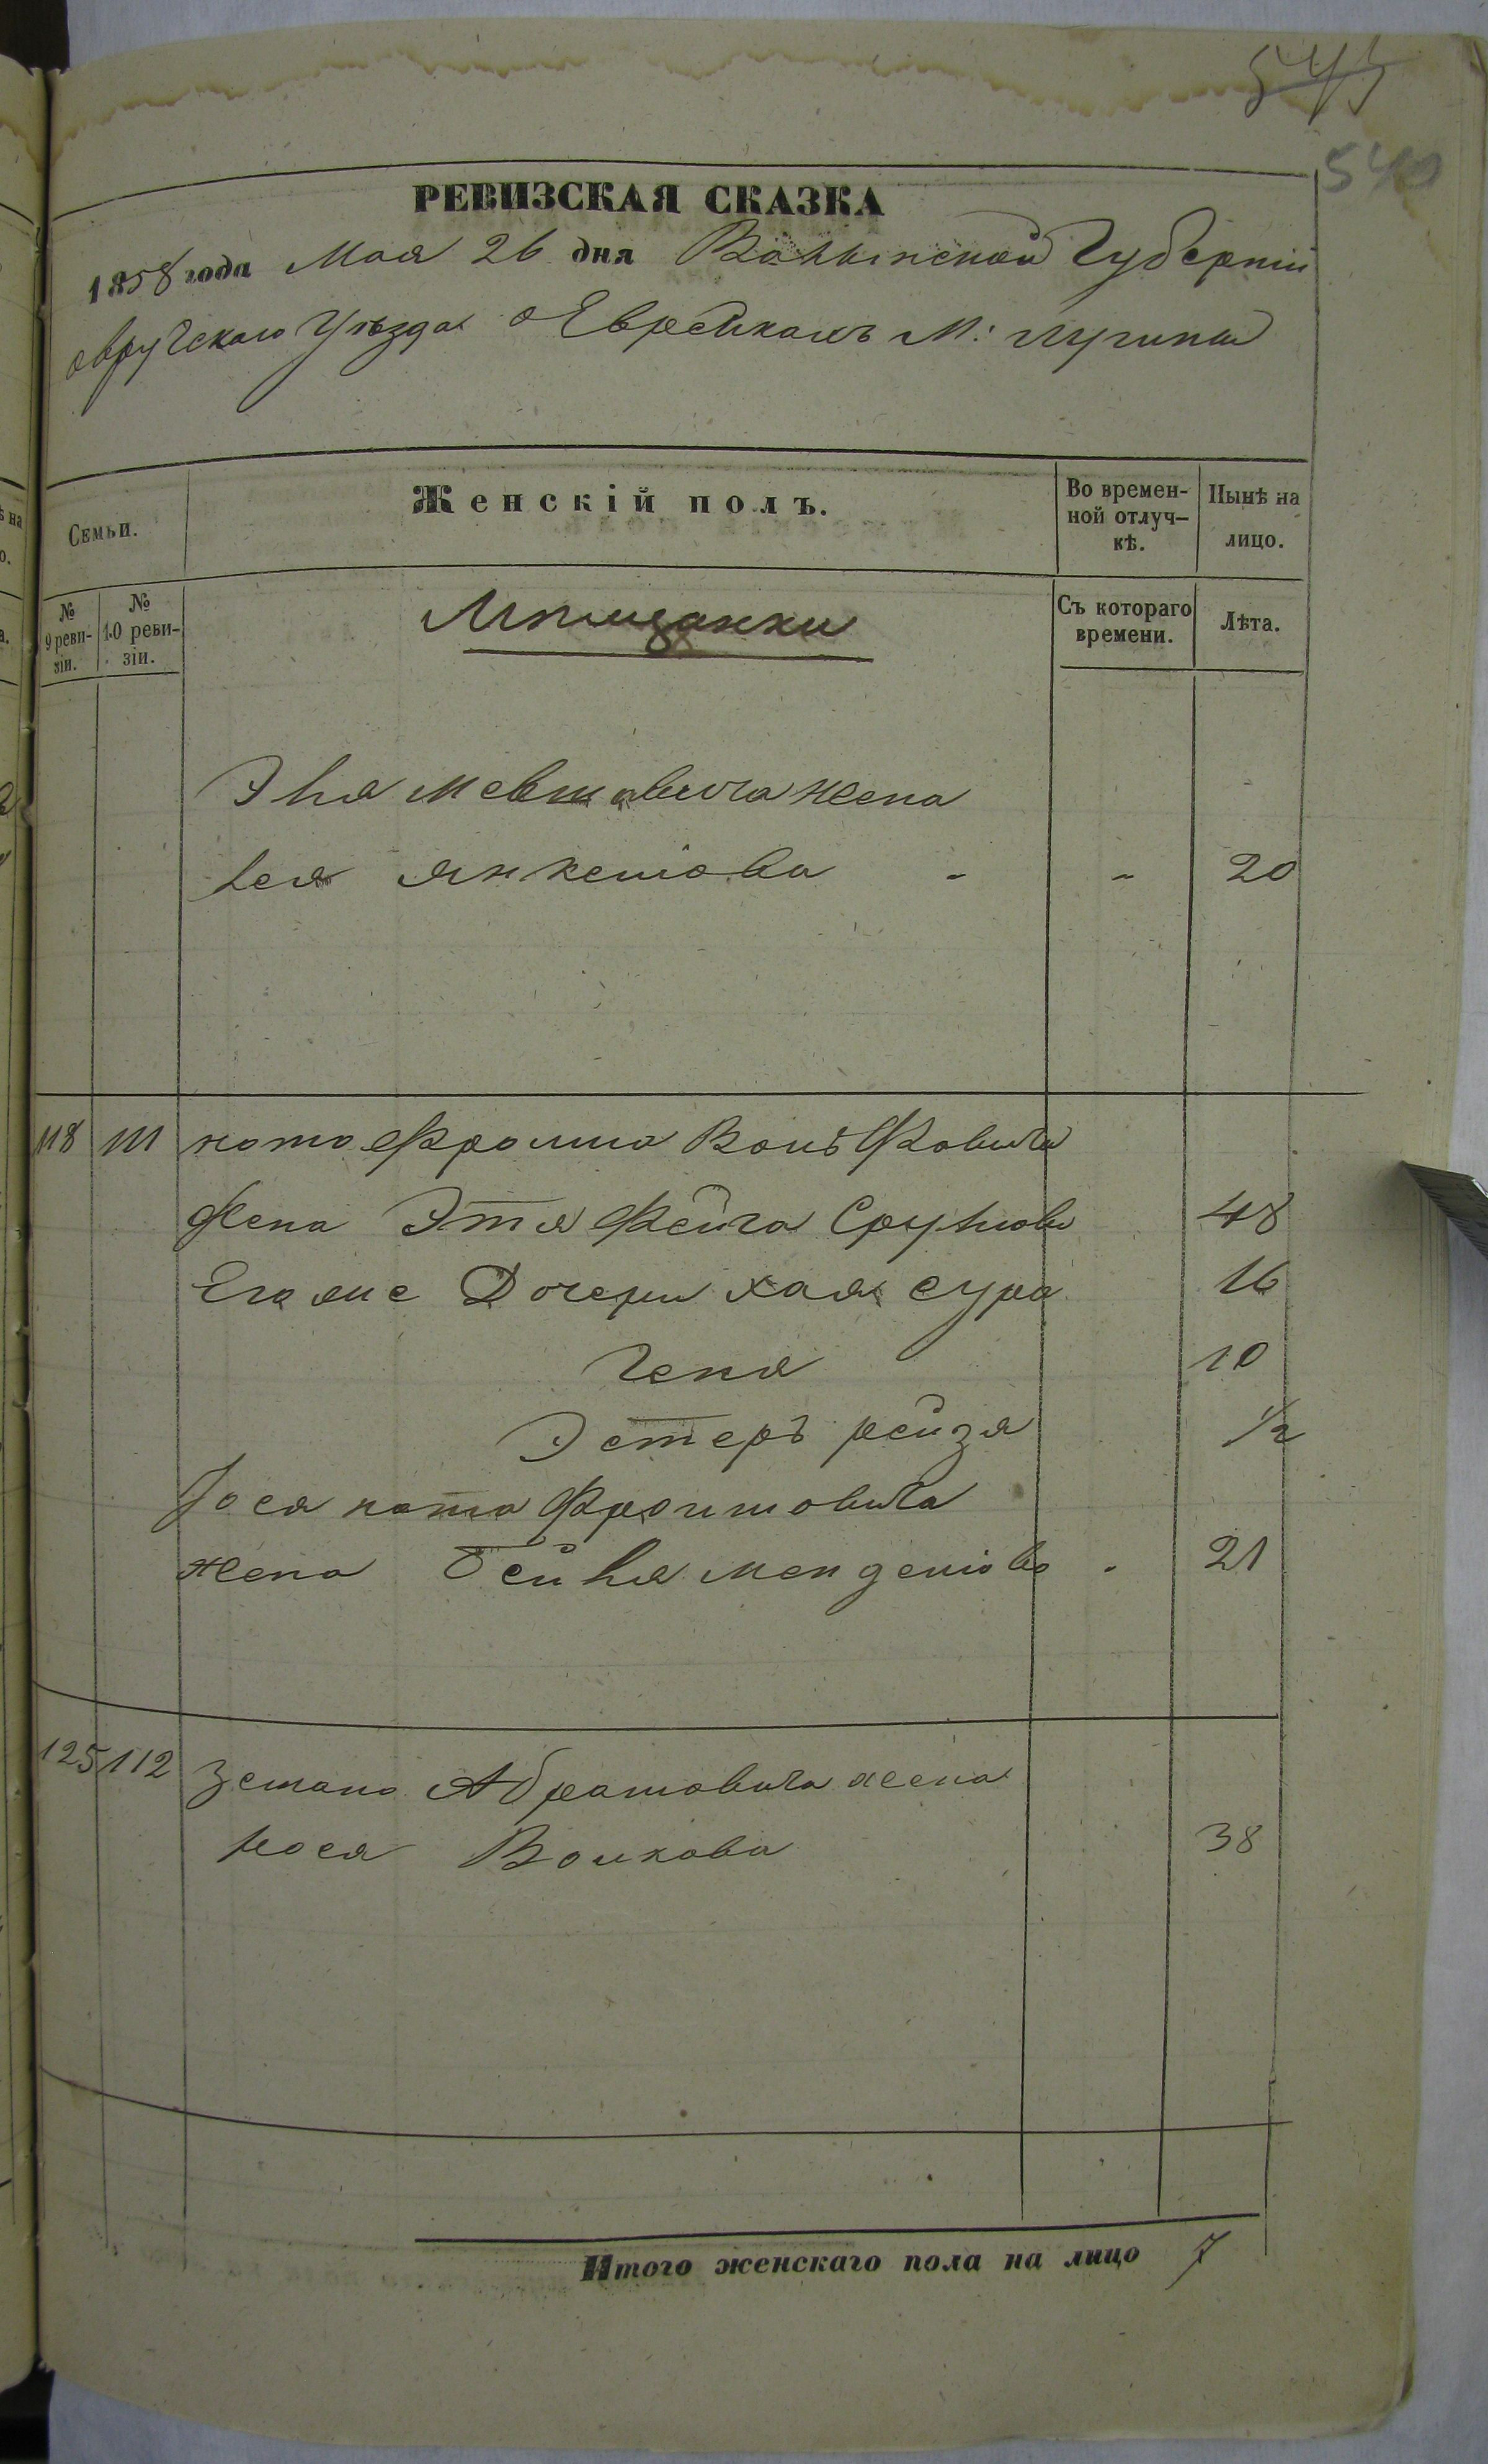 545
540
РЕВИЗСКАЯ СКАЗКА
1858 года Мая 26 дня Волынской Губерніи
Овручскаго Уѣзда о Еврейкахъ М: Лугинъ
Семьи.
Женскій полъ.
Во времен-
ной отлуч-
кѣ.
Нынѣ на
лицо.
№
9 реви-
зіи.
№
10 реви-
зіи.
Мѣщанки
Съ котораго
времени.
Лѣта.
Эля жена
Лея Янкелiова - - 20
118 111 Ната Фроима Вольфовича
Жена Этя Фейга Срулiова 48
Его же Дочери Хая Сура 16
Геня 10
Эстеръ рейзя 1/2
Іося ната Фроимовича
жена Бейля Менделiова - 21
125 112 Зелмана Абрамовича жена
Волкова 38
Итого женскаго пола на лицо 7